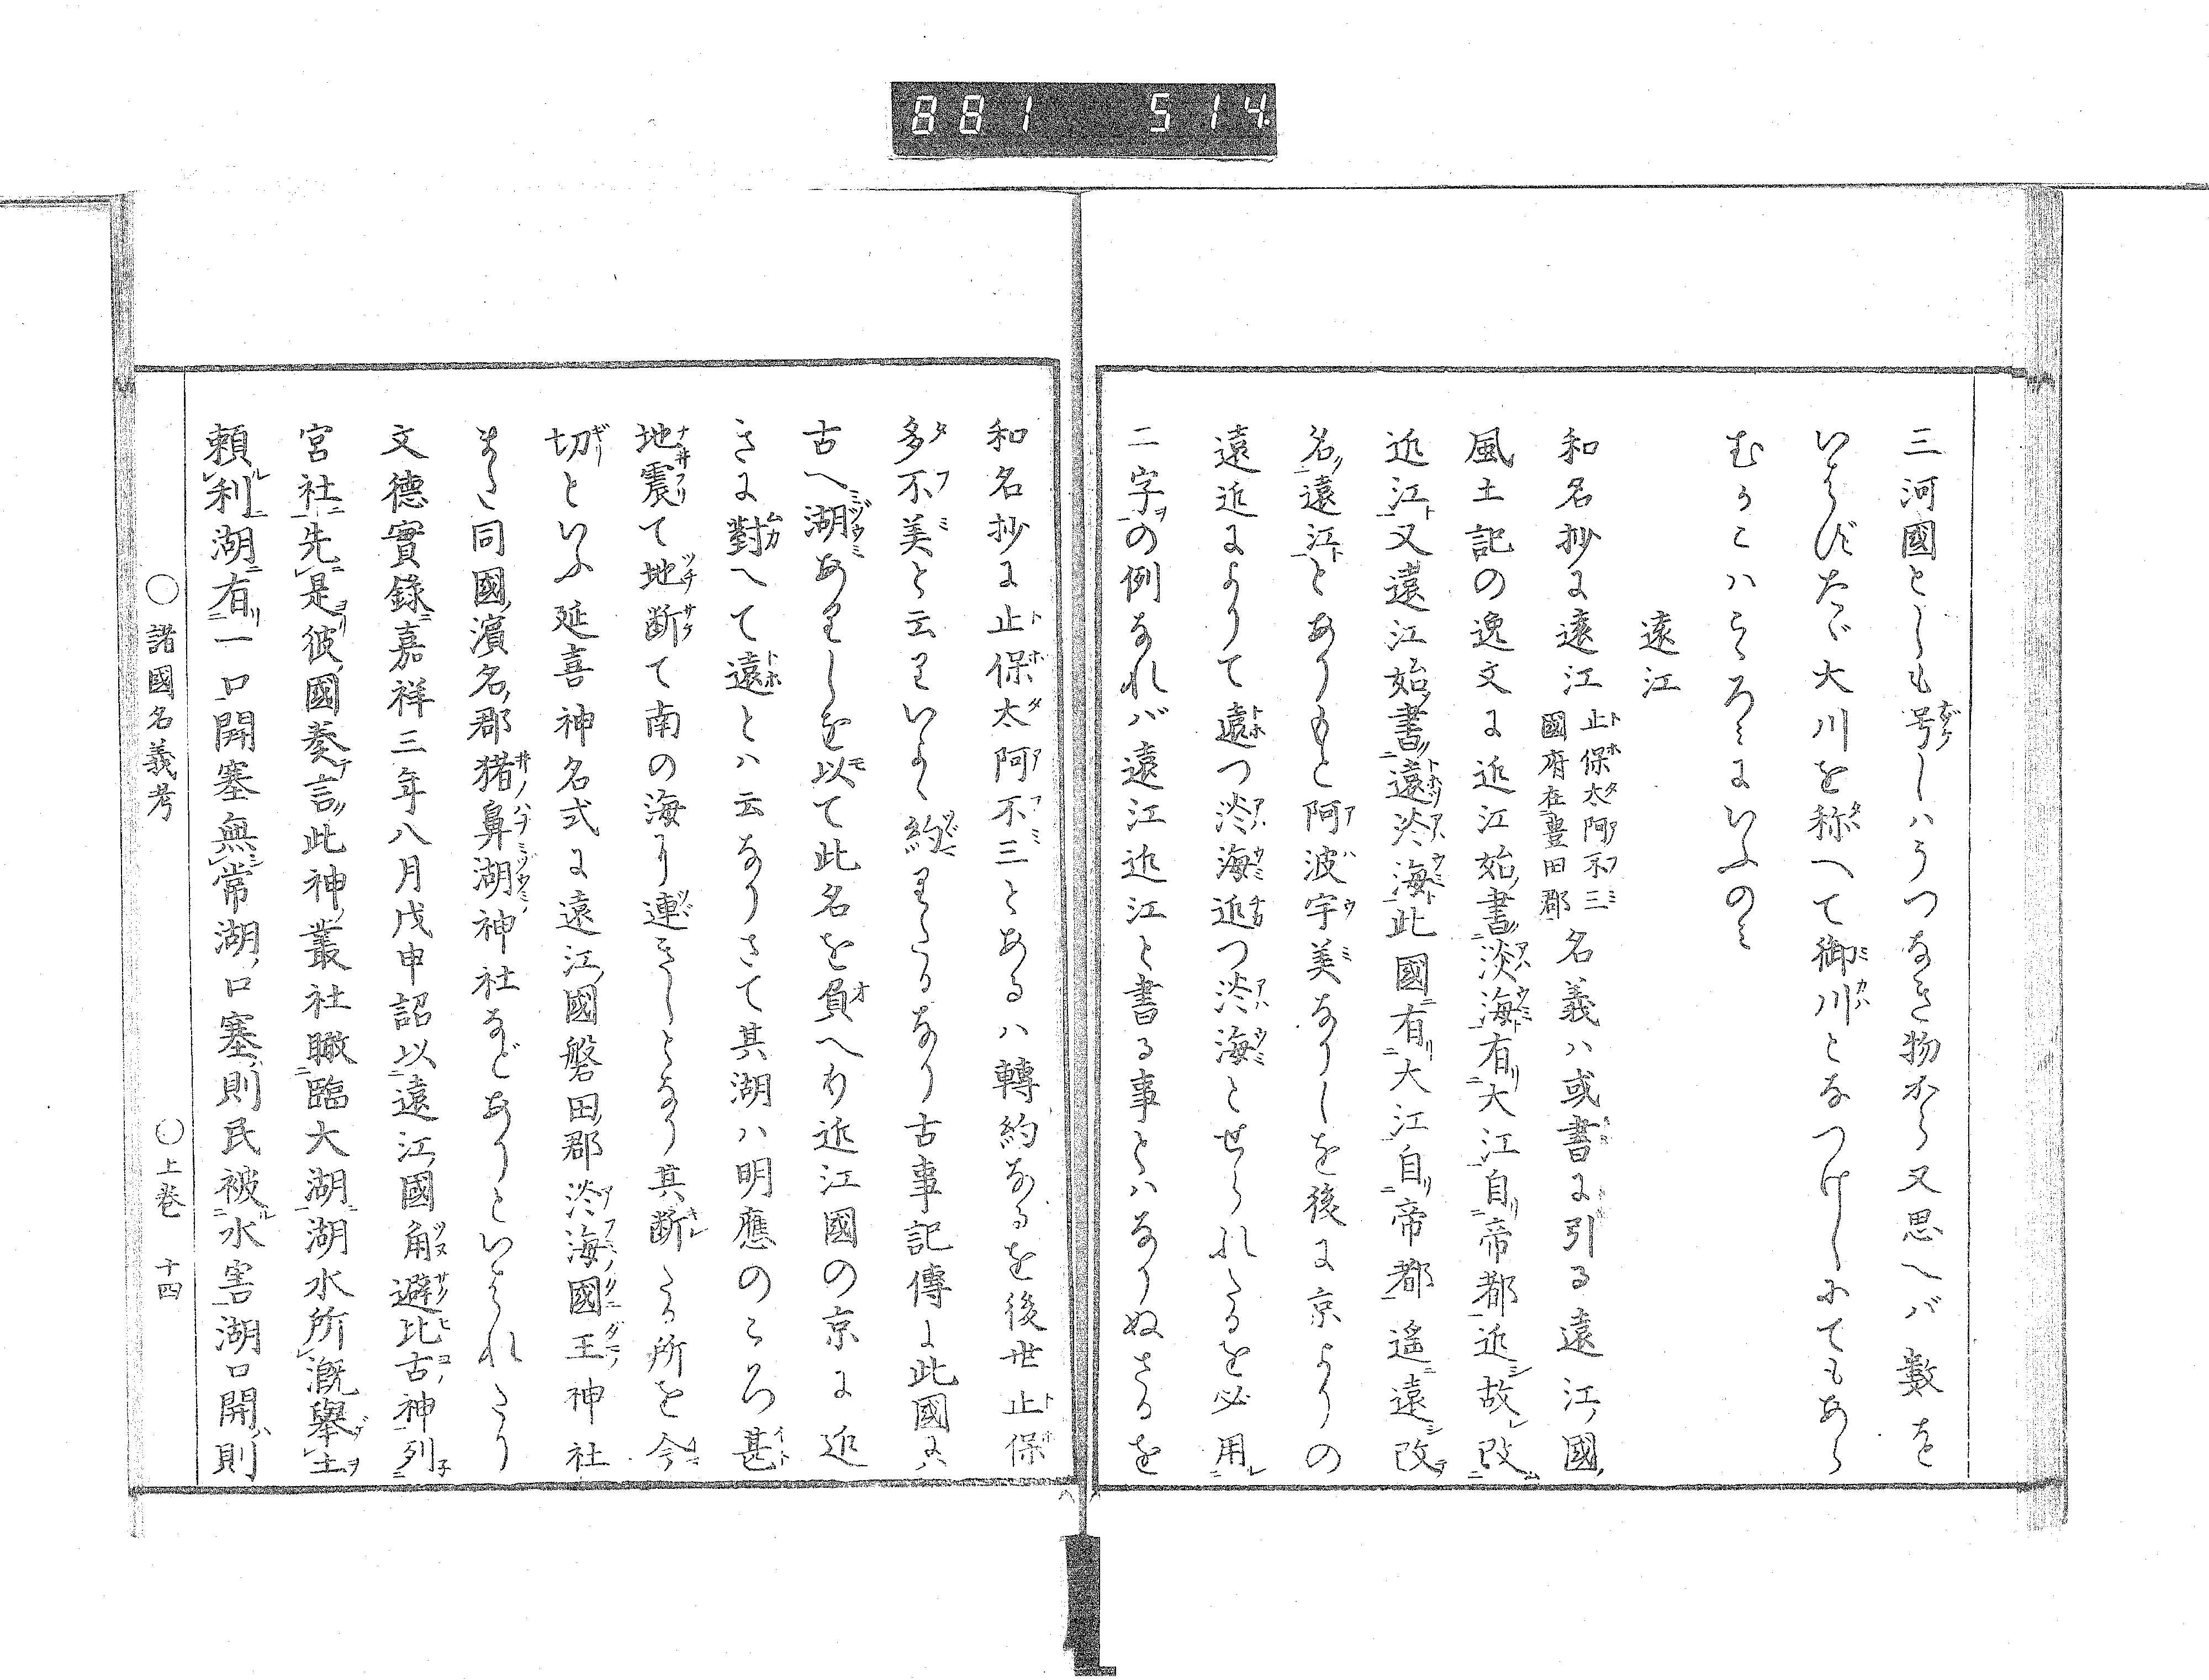 881 514
三河國としも号しハうつなき物から又思へバ數を
いはびたゞ大川を称へて御川となつけしにてもあら
むかこハこゝろみにいふのミ
遠江
和名抄に遠江 止保太阿不三 國府在豊田郡 名義ハ或書に引る遠江國
風土記の逸文に近江始書淡海有大江自帝都近故改
近江又遠江始書遠淡海此國有大江自帝都遥遠改
名遠江とありもと阿波宇美なりしを後に京よりの
遠近によりて遠つ淡海近つ淡海とせられたるを必用
二字の例なれバ遠江近江と書る事とハなりぬさるを
和名抄に止保太阿不三とあるハ轉約なるを後世止保
多不美と云はいよゝ約りたるなり古事記傳に此國に
古へ湖ありしを以て此名を負へり近江國の京に近
きに對へて遠とハ云なりさて其湖ハ明應のころ甚
地震て地断て南の海に連きしとなり其断たる所を今
切といふ延喜神名式に遠江國磐田郡淡海國玉神社
また同國濱名郡猪鼻湖神社などありといはれたり
文德實錄嘉祥三年八月戊申詔以遠江國角避比古神列
宮社先是彼國奏言此神叢社瞰臨大湖湖水所漑擧土
頼利湖有一口開塞無常湖口塞則民被水害湖口開則
○諸國名義考 ○上巻 十四